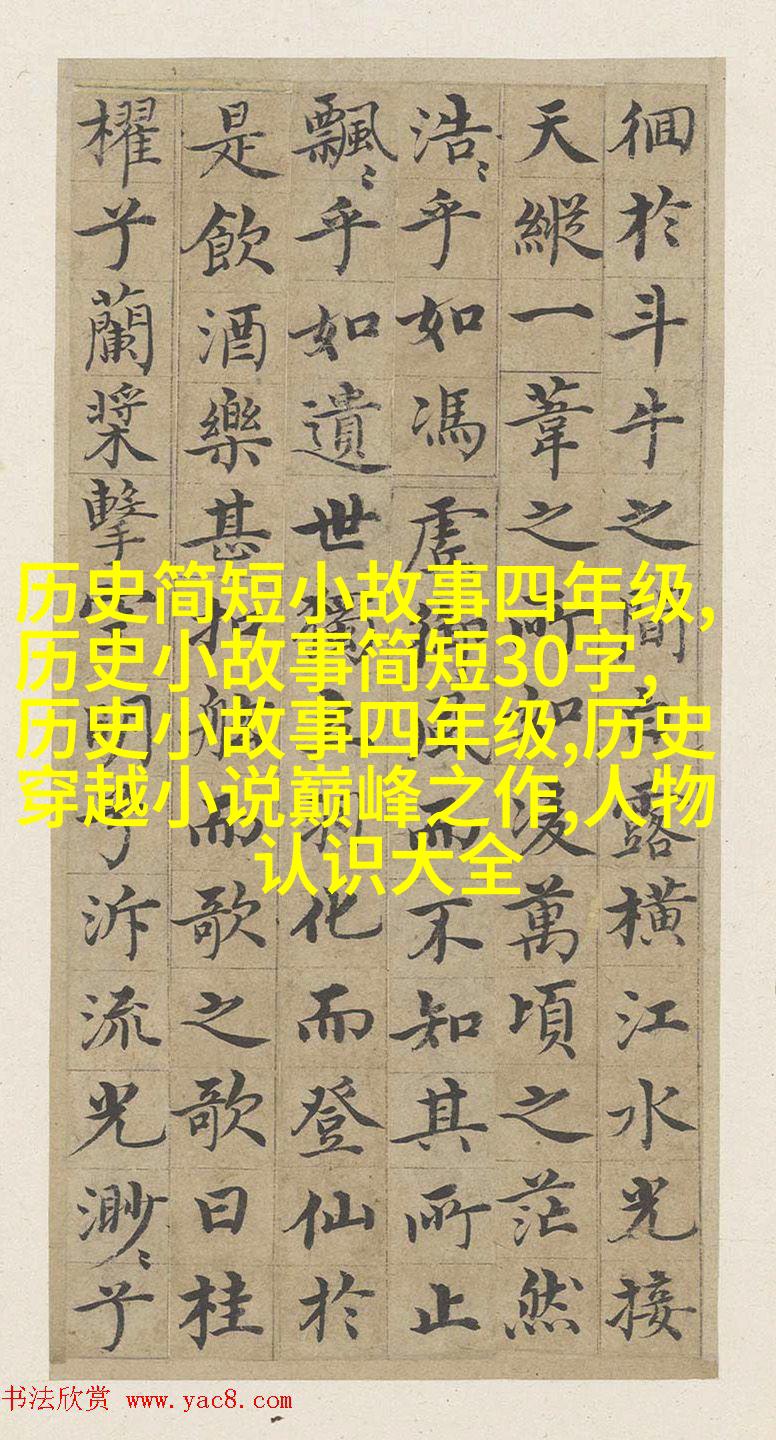 徊於斗牛之間白露橫江水光接
天縱一葦之所如凌萬頃之茫然
浩〻乎如馮虛御風而不知其所止
飄〻乎如遺世獨立羽化而登仙於
是飲酒樂甚扣舷而歌之歌曰桂
櫂兮蘭槳擊空明兮泝流光渺〻兮
历史简短小故事四年级,
历史小故事简短30字,
历史小故事四年级,历史
穿越小说巅峰之作,人物
认识大全
书法欣赏 www.yac8.com